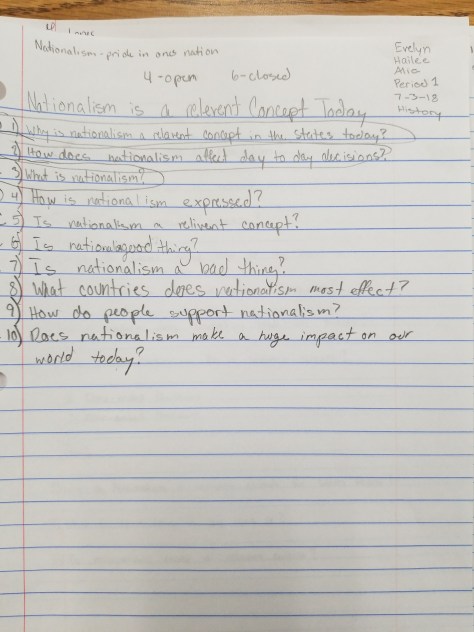 Nationalism - pride in ones nation
Evelyn
Hailee
4 - open 6 - closed
Period 1
7-3-18
History
Nationalism is a relevent Concept Today
1) Why is nationalism a relavent concept in the states today?
2) How does nationalism affect day to day decisions?
3) What is nationalism?
4) How is nationalism expressed?
5) Is nationalism a relivent concept?
6) Is national good thing?
7) Is nationalism a bad thing?
8) What countries does nationalism most effect?
9) How do people support nationalism?
10) Does nationalism make a huge impact on our
world today?